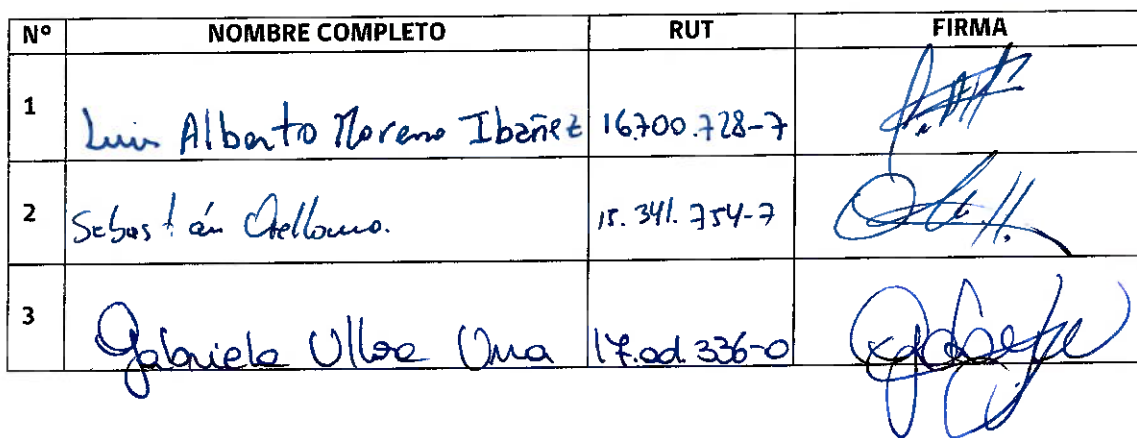 Nº NOMBRE COMPLETO RUT FIRMA
1 Luis Alberto Moreno Ibáñez 16.700.728-7
2 Sebastián Orellana. 15.341.754-7
3 Gabriela Ulloa